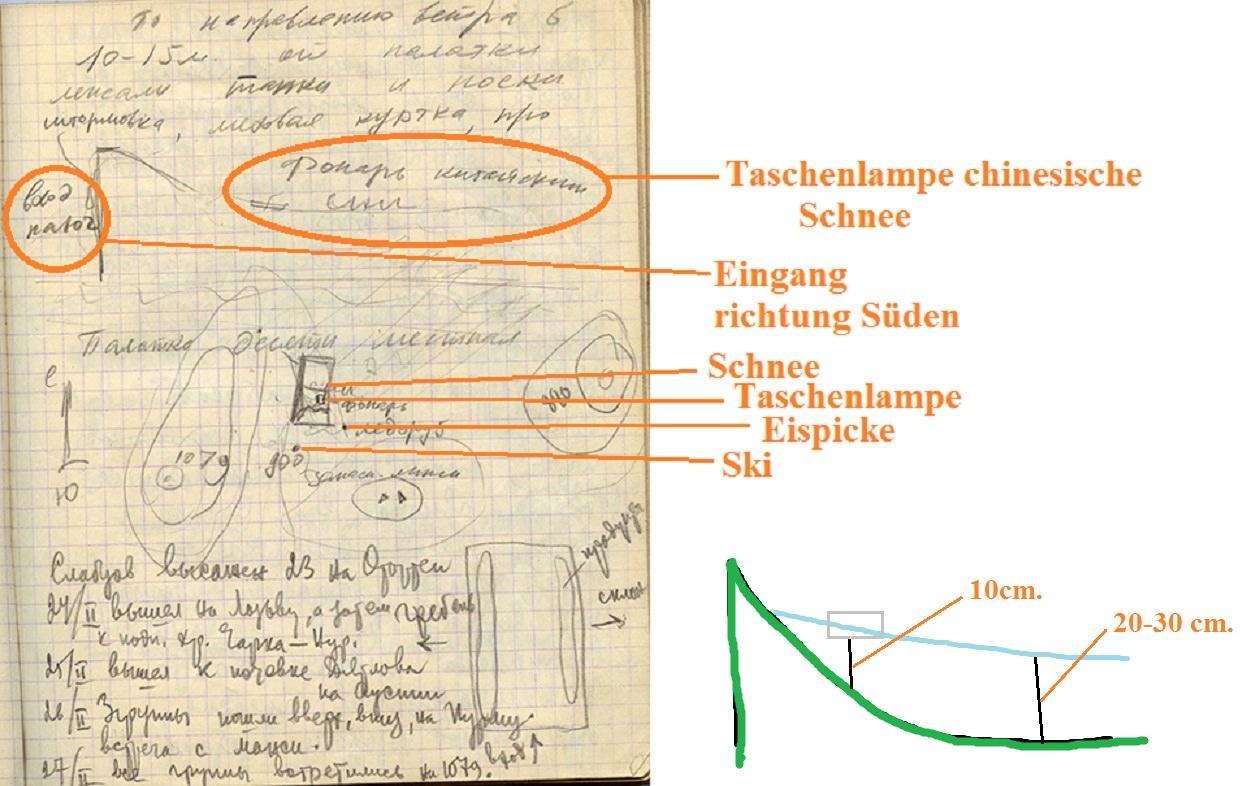 По направлению ветра б
10-15м. от палатки
лежали тапки и носки
штормовка, меховая куртка, про
Фонарь китайский
снег
вход
Палатка десяти местная
С
Ю
фонарь
ледоруб
1079
900
880
запасн. лыжи
продукты
склон
Слабцов высажен 23 на Отортен
24/II вышел на Лозьву, а затем гребень
к подн. хр. Чарка-Нур.
25/II вышел к ночевке Дятлова
на Ауспии
26/II 3 группы пошли вверх, вниз, на Пурму.
встреча с манси.
27/II все группы встретились на 1079.
вход
Taschenlampe chinesische
Schnee
Eingang
richtung Süden
Schnee
Taschenlampe
Eispicke
Ski
10cm.
20-30 cm.